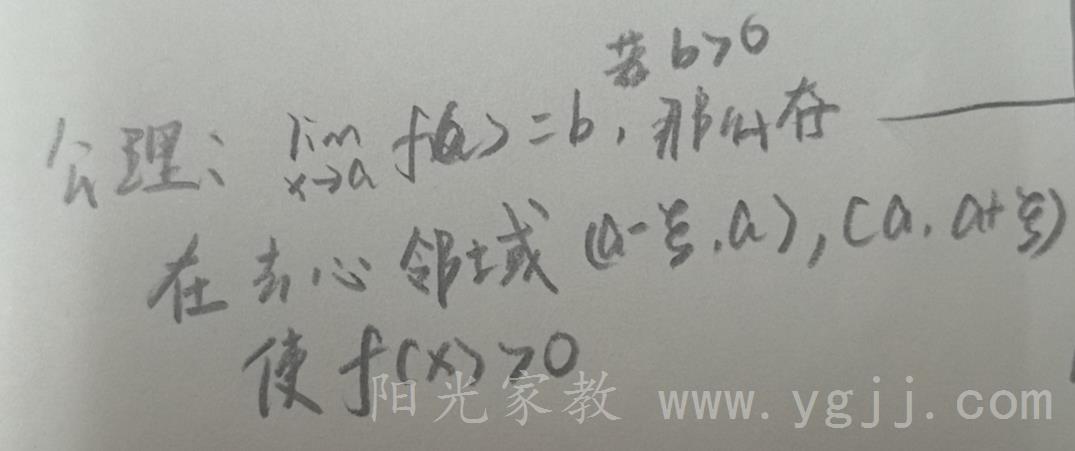 若b>0
公理: lim f(x)=b, 那么存
x→a
在去心邻域 (a-ξ,a), (a,a+ξ)
使 f(x)>0
阳光家教 www.ygjj.com